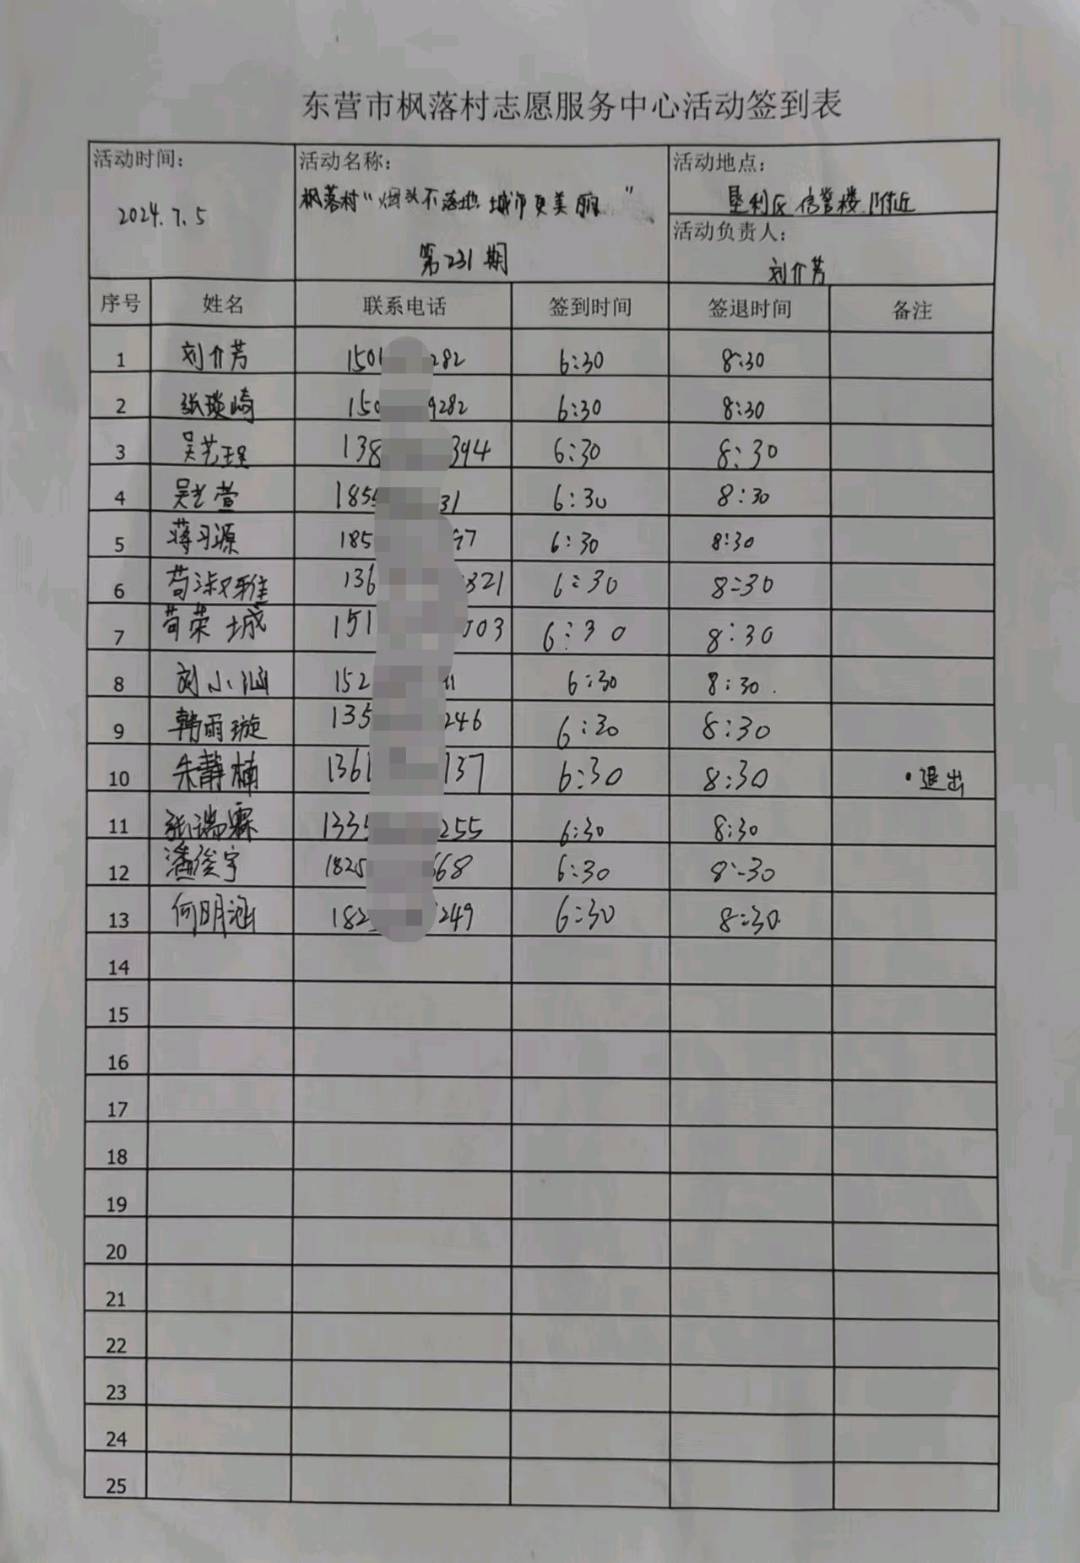 东营市枫落村志愿服务中心活动签到表
活动时间: 活动名称: 活动地点:
2024.7.5 枫落村“烟头不落地 城市更美丽” 垦利区 信誉楼附近
第231期 活动负责人:
刘介芳
序号 姓名 联系电话 签到时间 签退时间 备注
1 刘介芳 150 282 6:30 8:30
2 张琰崎 150 9282 6:30 8:30
3 吴艺珵 138 394 6:30 8:30
4 吴艺萱 185 31 6:30 8:30
5 蒋习源 185 97 6:30 8:30
6 苟淑雅 136 821 6:30 8:30
7 苟荣城 151 003 6:30 8:30
8 刘小涵 152 11 6:30 8:30.
9 韩雨璇 135 246 6:30 8:30
10 朱静楠 1361 137 6:30 8:30 ·退出
11 张瑞霖 1335 255 6:30 8:30
12 潘俊宇 1825 668 6:30 8:30
13 何明涵 182 249 6:30 8:30
14
15
16
17
18
19
20
21
22
23
24
25